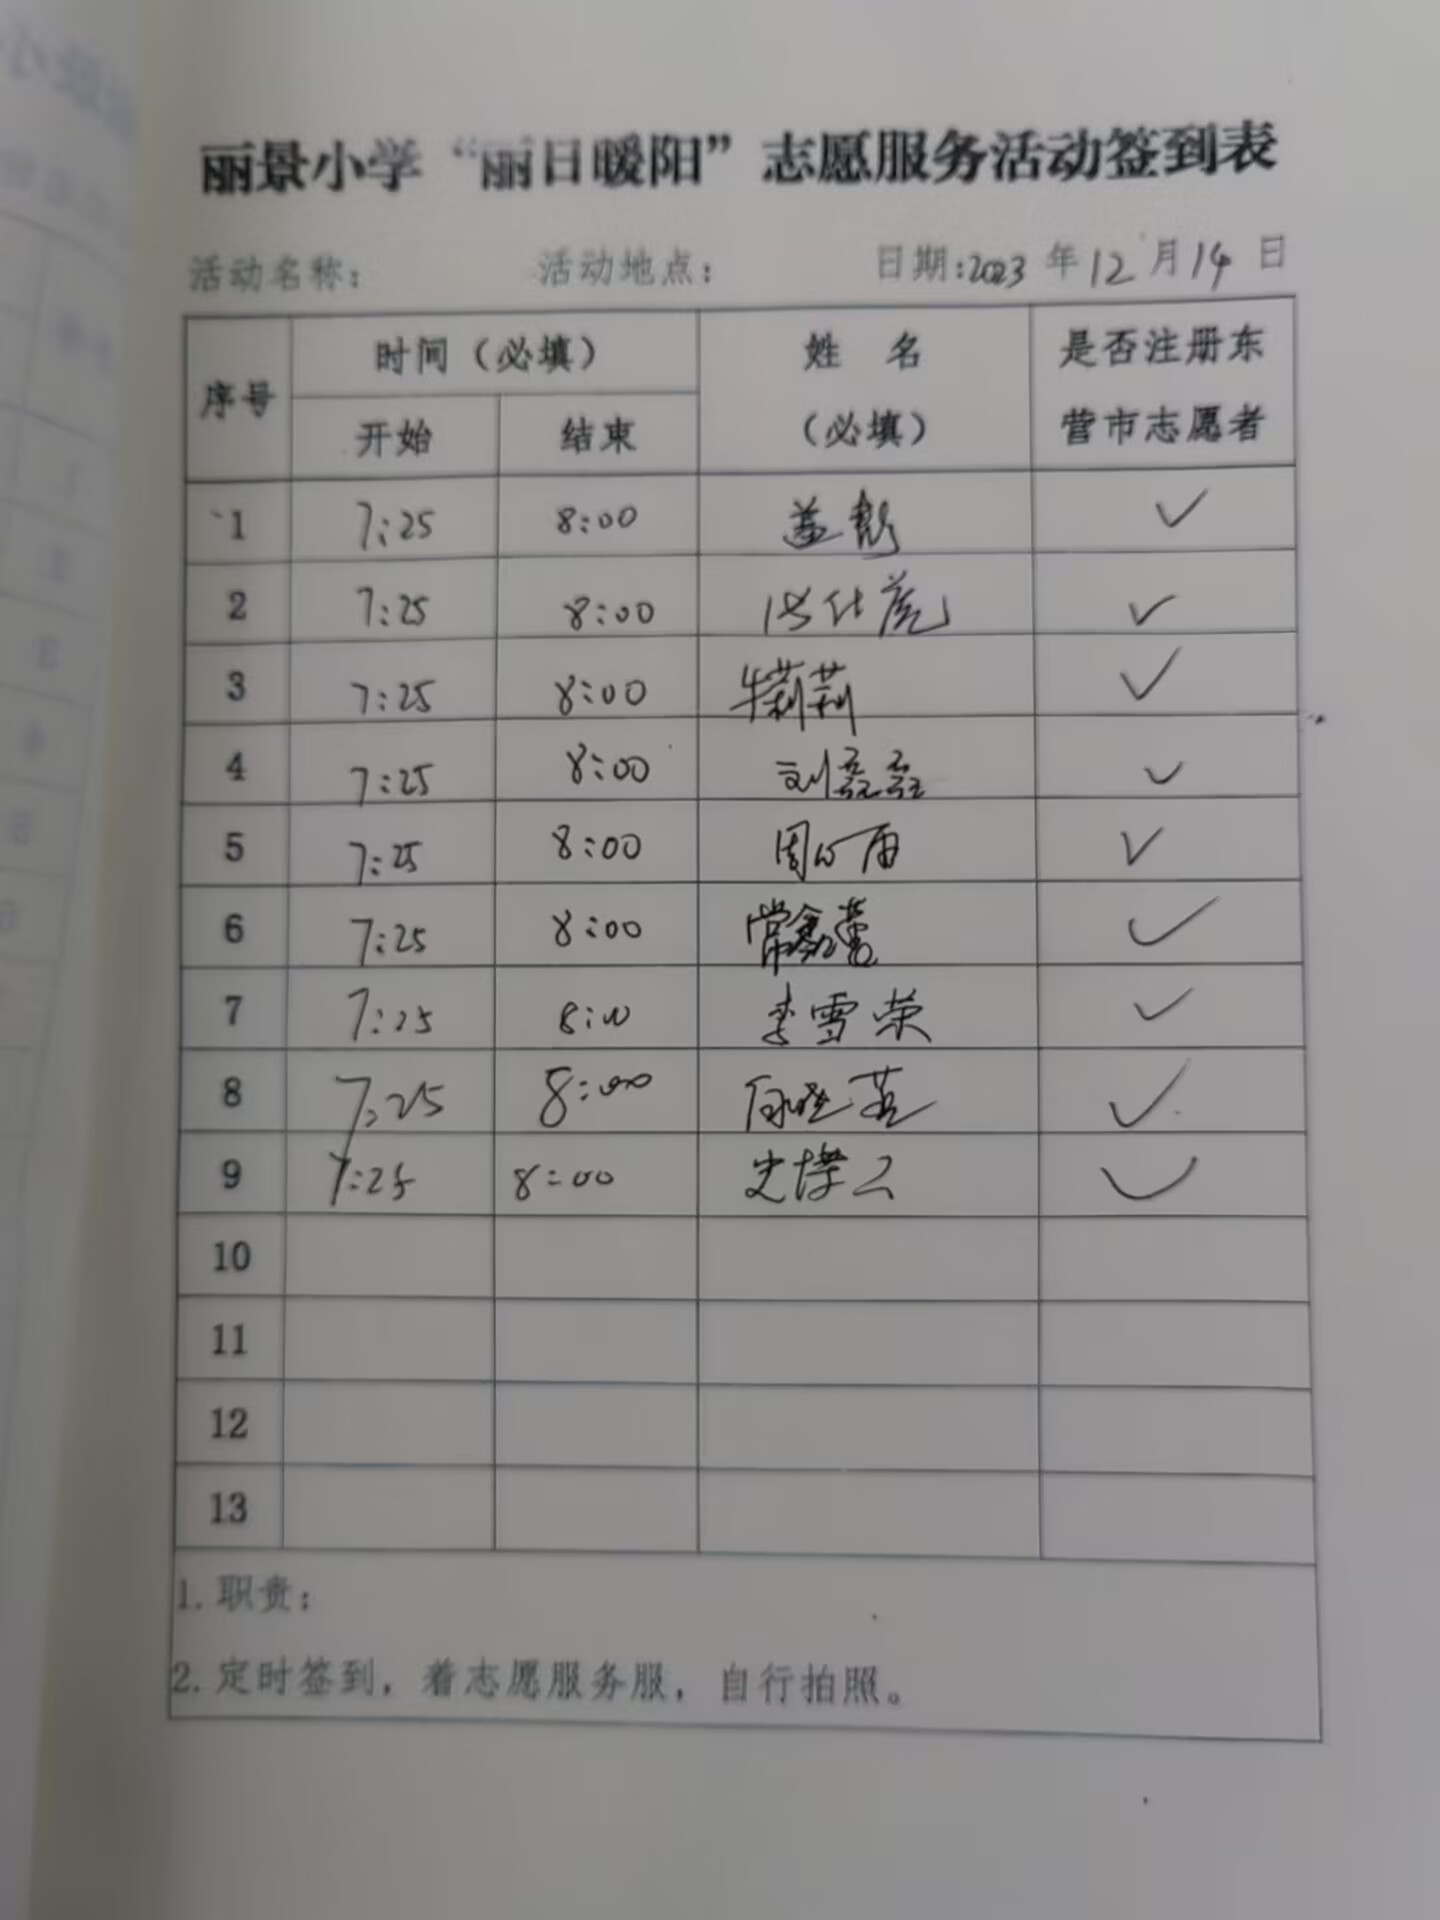 丽景小学“丽日暖阳”志愿服务活动签到表
活动名称： 活动地点： 日期:2023 年 12 月 14 日
序号 时间（必填） 姓 名（必填） 是否注册东营市志愿者
开始 结束
1 7:25 8:00 ✓
2 7:25 8:00 ✓
3 7:25 8:00 牛莉莉 ✓
4 7:25 8:00 刘磊磊 ✓
5 7:25 8:00 ✓
6 7:25 8:00 常鑫蕾 ✓
7 7:25 8:00 李雪荣 ✓
8 7:25 8:00 ✓
9 7:25 8:00 ✓
10
11
12
13
1. 职责：
2. 定时签到，着志愿服务服，自行拍照。